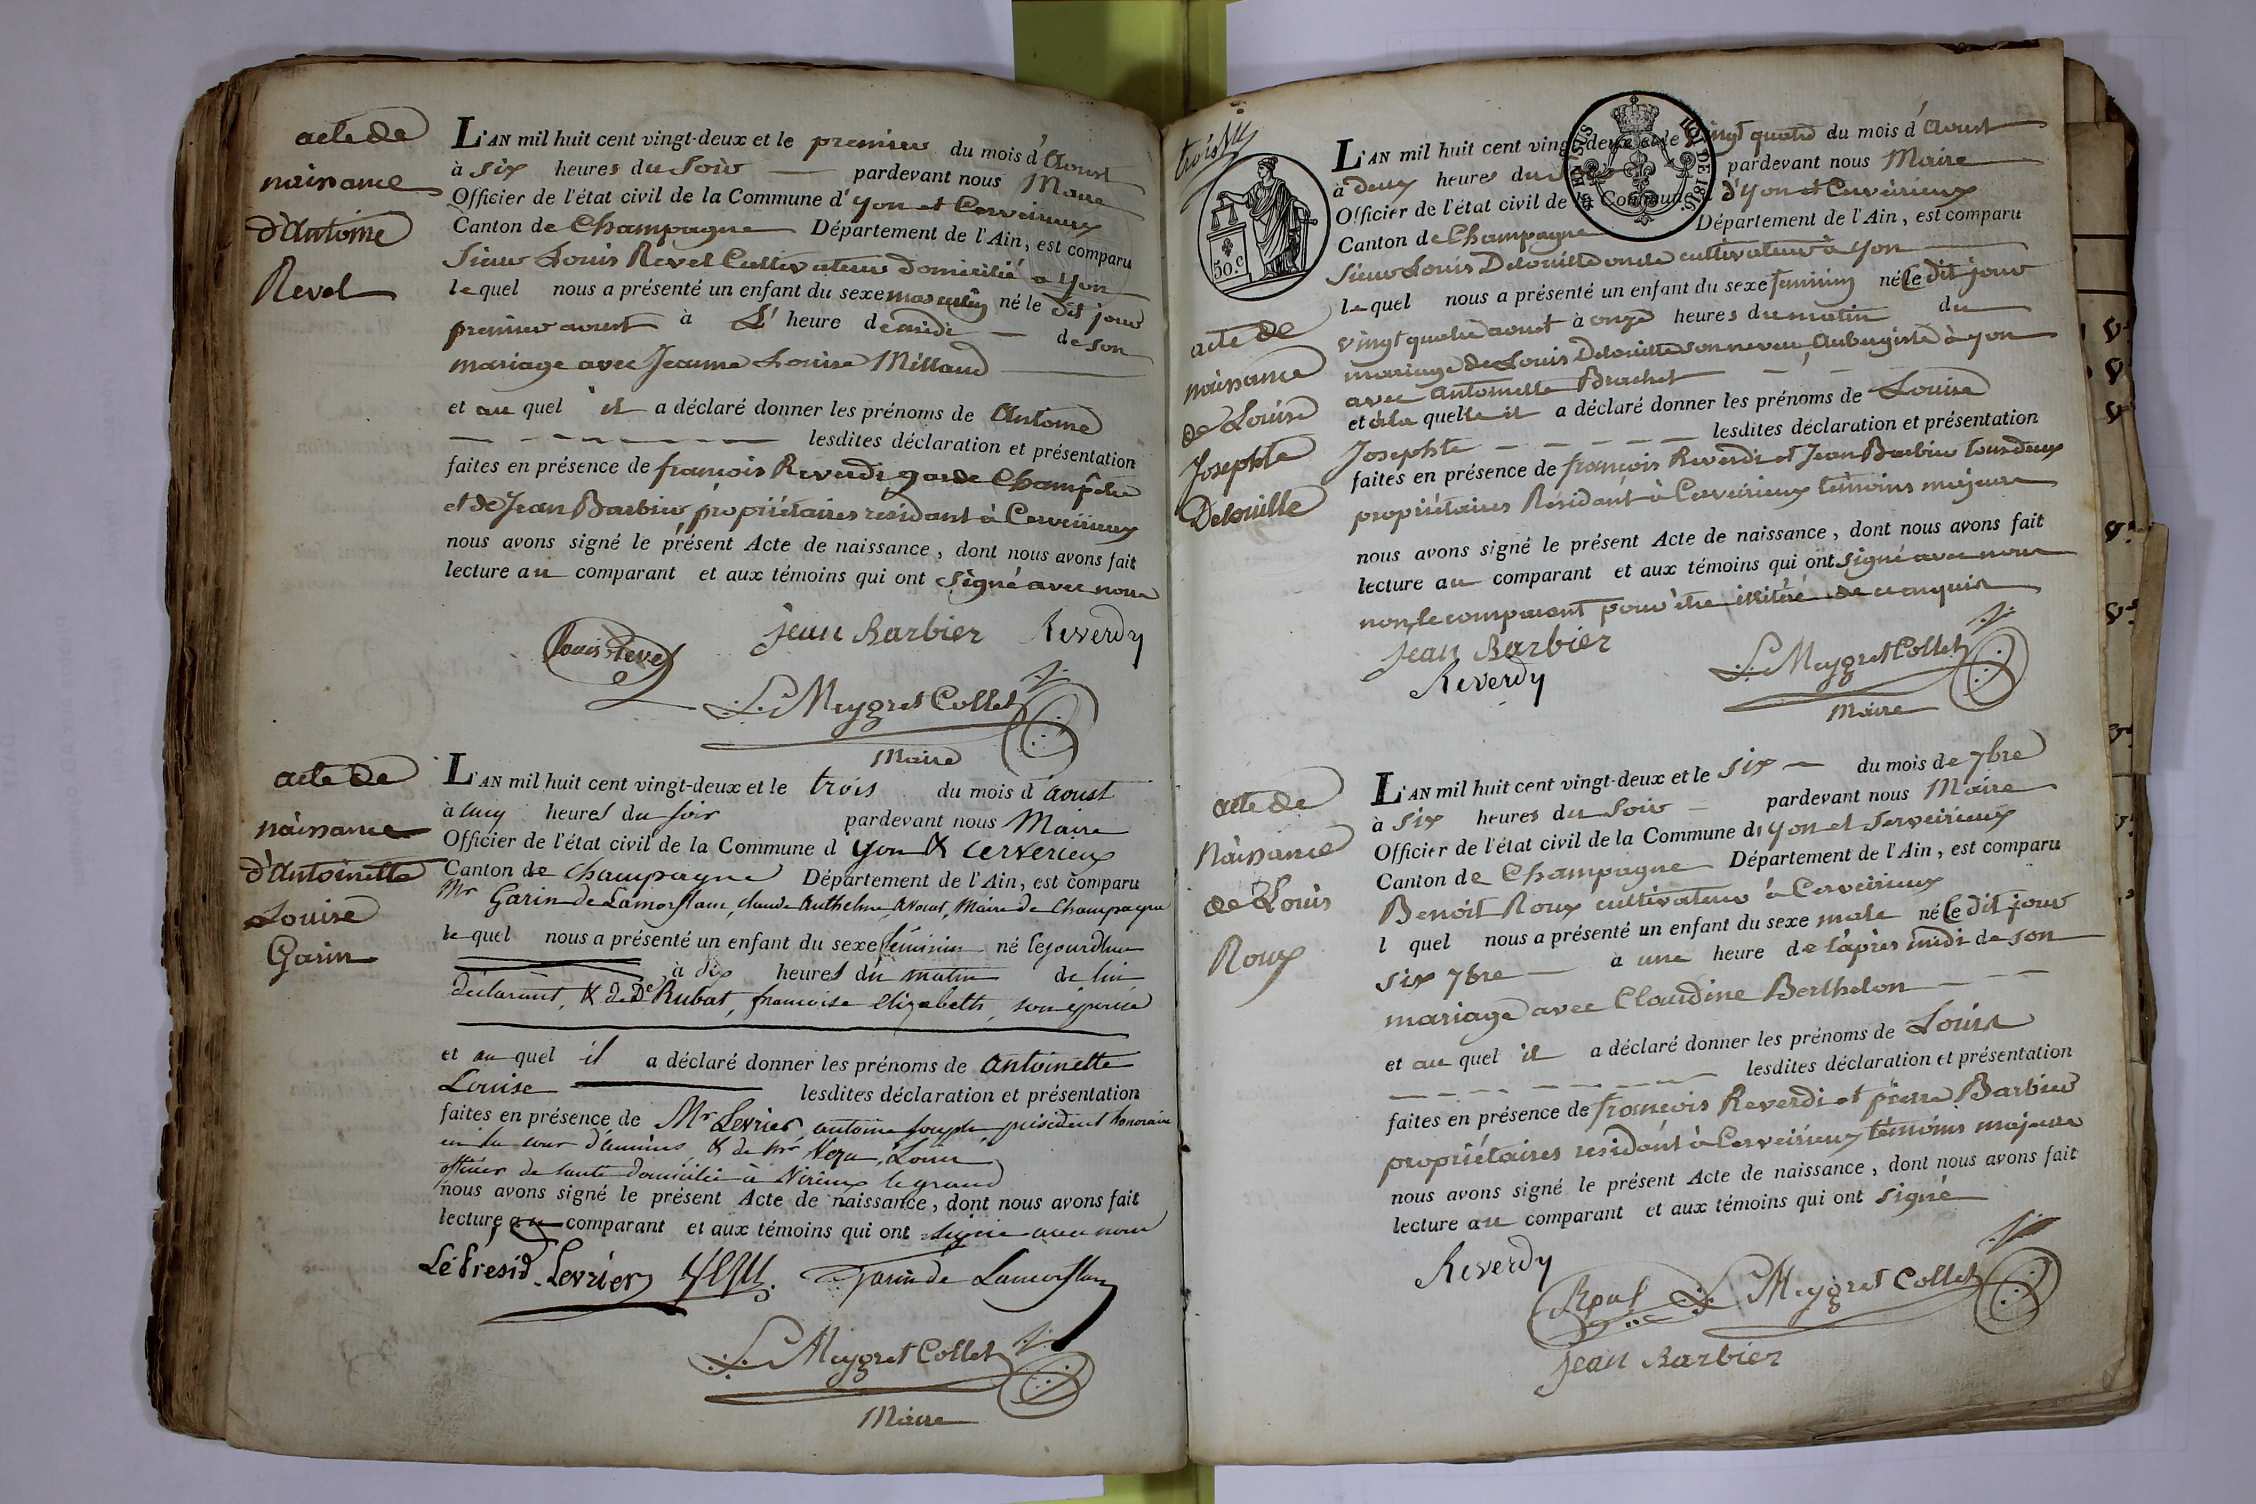 acte de
naissance
d'Antoine
Revel
L'AN mil huit cent vingt-deux et le premier du mois d'Aoust
à six heures du Soir pardevant nous Maire
Officier de l'état civil de la Commune d'yon et Cerveirieux
Canton de Champagne Département de l'Ain, est comparu
Sieur Louis Revel Cultivateur domicilié a yon
lequel nous a présenté un enfant du sexe masculin né le dit jour
premier aoust à L' heure de midi de son
mariage avec Jeanne Louise Milland
et au quel il a déclaré donner les prénoms de Antoine
lesdites déclaration et présentation
faites en présence de françois Reverdi garde Champêtre
et de Jean Barbier propriétaires résidant à Cerveirieux
nous avons signé le présent Acte de naissance, dont nous avons fait
lecture au comparant et aux témoins qui ont signé avec nous
Louis Revel Jean Barbier Reverdy
L. Meygret Collet
Maire
acte de
naissance
d'Antoinette
Louise
Garin
L'AN mil huit cent vingt-deux et le trois du mois d'aoust
à cinq heures du soir pardevant nous Maire
Officier de l'état civil de la Commune d yon & cerverieux
Canton de Champagne Département de l'Ain, est comparu
Mr Garin de Lamorflam, claude Anthelme, Avocat, Maire de Champagne
le quel nous a présenté un enfant du sexe féminin né lejourdhui
à dix heures du matin de lui
déclarant, & de De Rubat, francoise elizabeth, son épouse
et au quel il a déclaré donner les prénoms de antoinette
Louise lesdites déclaration et présentation
faites en présence de Mr Levrier, antoine joseph président honoraire
en la cour d'amiens, & de Mr Louis
officier de santé domicilié à Virieux le grand
nous avons signé le présent Acte de naissance, dont nous avons fait
lecture au comparant et aux témoins qui ont signé avec nous
Le Presidt Levrier Garin de Lamorflam
L. Meygret Collet
Maire
trois
50.c
LOI DE 1816
acte de
naissance
de Louise
Josephte
Delouille
L'AN mil huit cent vingt-deux et le vingt quatre du mois d'Aoust
à deux heures du pardevant nous Maire
Officier de l'état civil de la Commune d'yon et Cerveirieux
Canton de Champagne Département de l'Ain, est comparu
Sieur Louis Delouille oncle cultivateur à yon
lequel nous a présenté un enfant du sexe feminin né le dit jour
vingt quatre aoust à onze heures du matin du
mariage de Louis Delouille son neveu, Aubergiste à yon
avec Antoinette Brachet
et à la quelle il a déclaré donner les prénoms de Louise
Josephte lesdites déclaration et présentation
faites en présence de françois Reverdi et Jean Barbier tous deux
propriétaires Résidant à Cerveirieux témoins majeurs
nous avons signé le présent Acte de naissance, dont nous avons fait
lecture au comparant et aux témoins qui ont signé avec nous
non, le comparant pour être illitéré de ce enquis
Jean Barbier
Reverdy
L. Meygret Collet
Maire
acte de
Naissance
de Louis
Roux
L'AN mil huit cent vingt-deux et le six du mois de 7bre
à six heures du Soir pardevant nous Maire
Officier de l'état civil de la Commune d'yon et Serveirieux
Canton de Champagne Département de l'Ain, est comparu
Benoit Roux cultivateur à Cerveirieux
l quel nous a présenté un enfant du sexe male né le dit jour
six 7bre à une heure de l'après midi de son
mariage avec Claudine Berthelon
et au quel il a déclaré donner les prénoms de Louis
lesdites déclaration et présentation
faites en présence de françois Reverdi et pierre Barbier
propriétaires résidant à Cerveirieux témoins majeurs
nous avons signé le présent Acte de naissance, dont nous avons fait
lecture au comparant et aux témoins qui ont signé
Reverdy
L. Meygret Collet
Jean Barbier